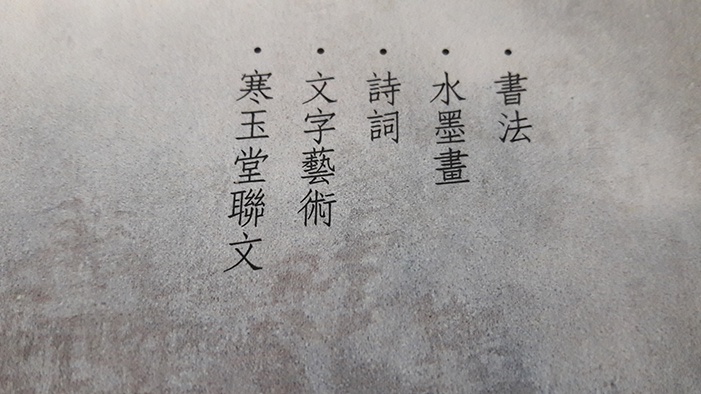 •書法
•水墨畫
•詩詞
•文字藝術
•寒玉堂聯文